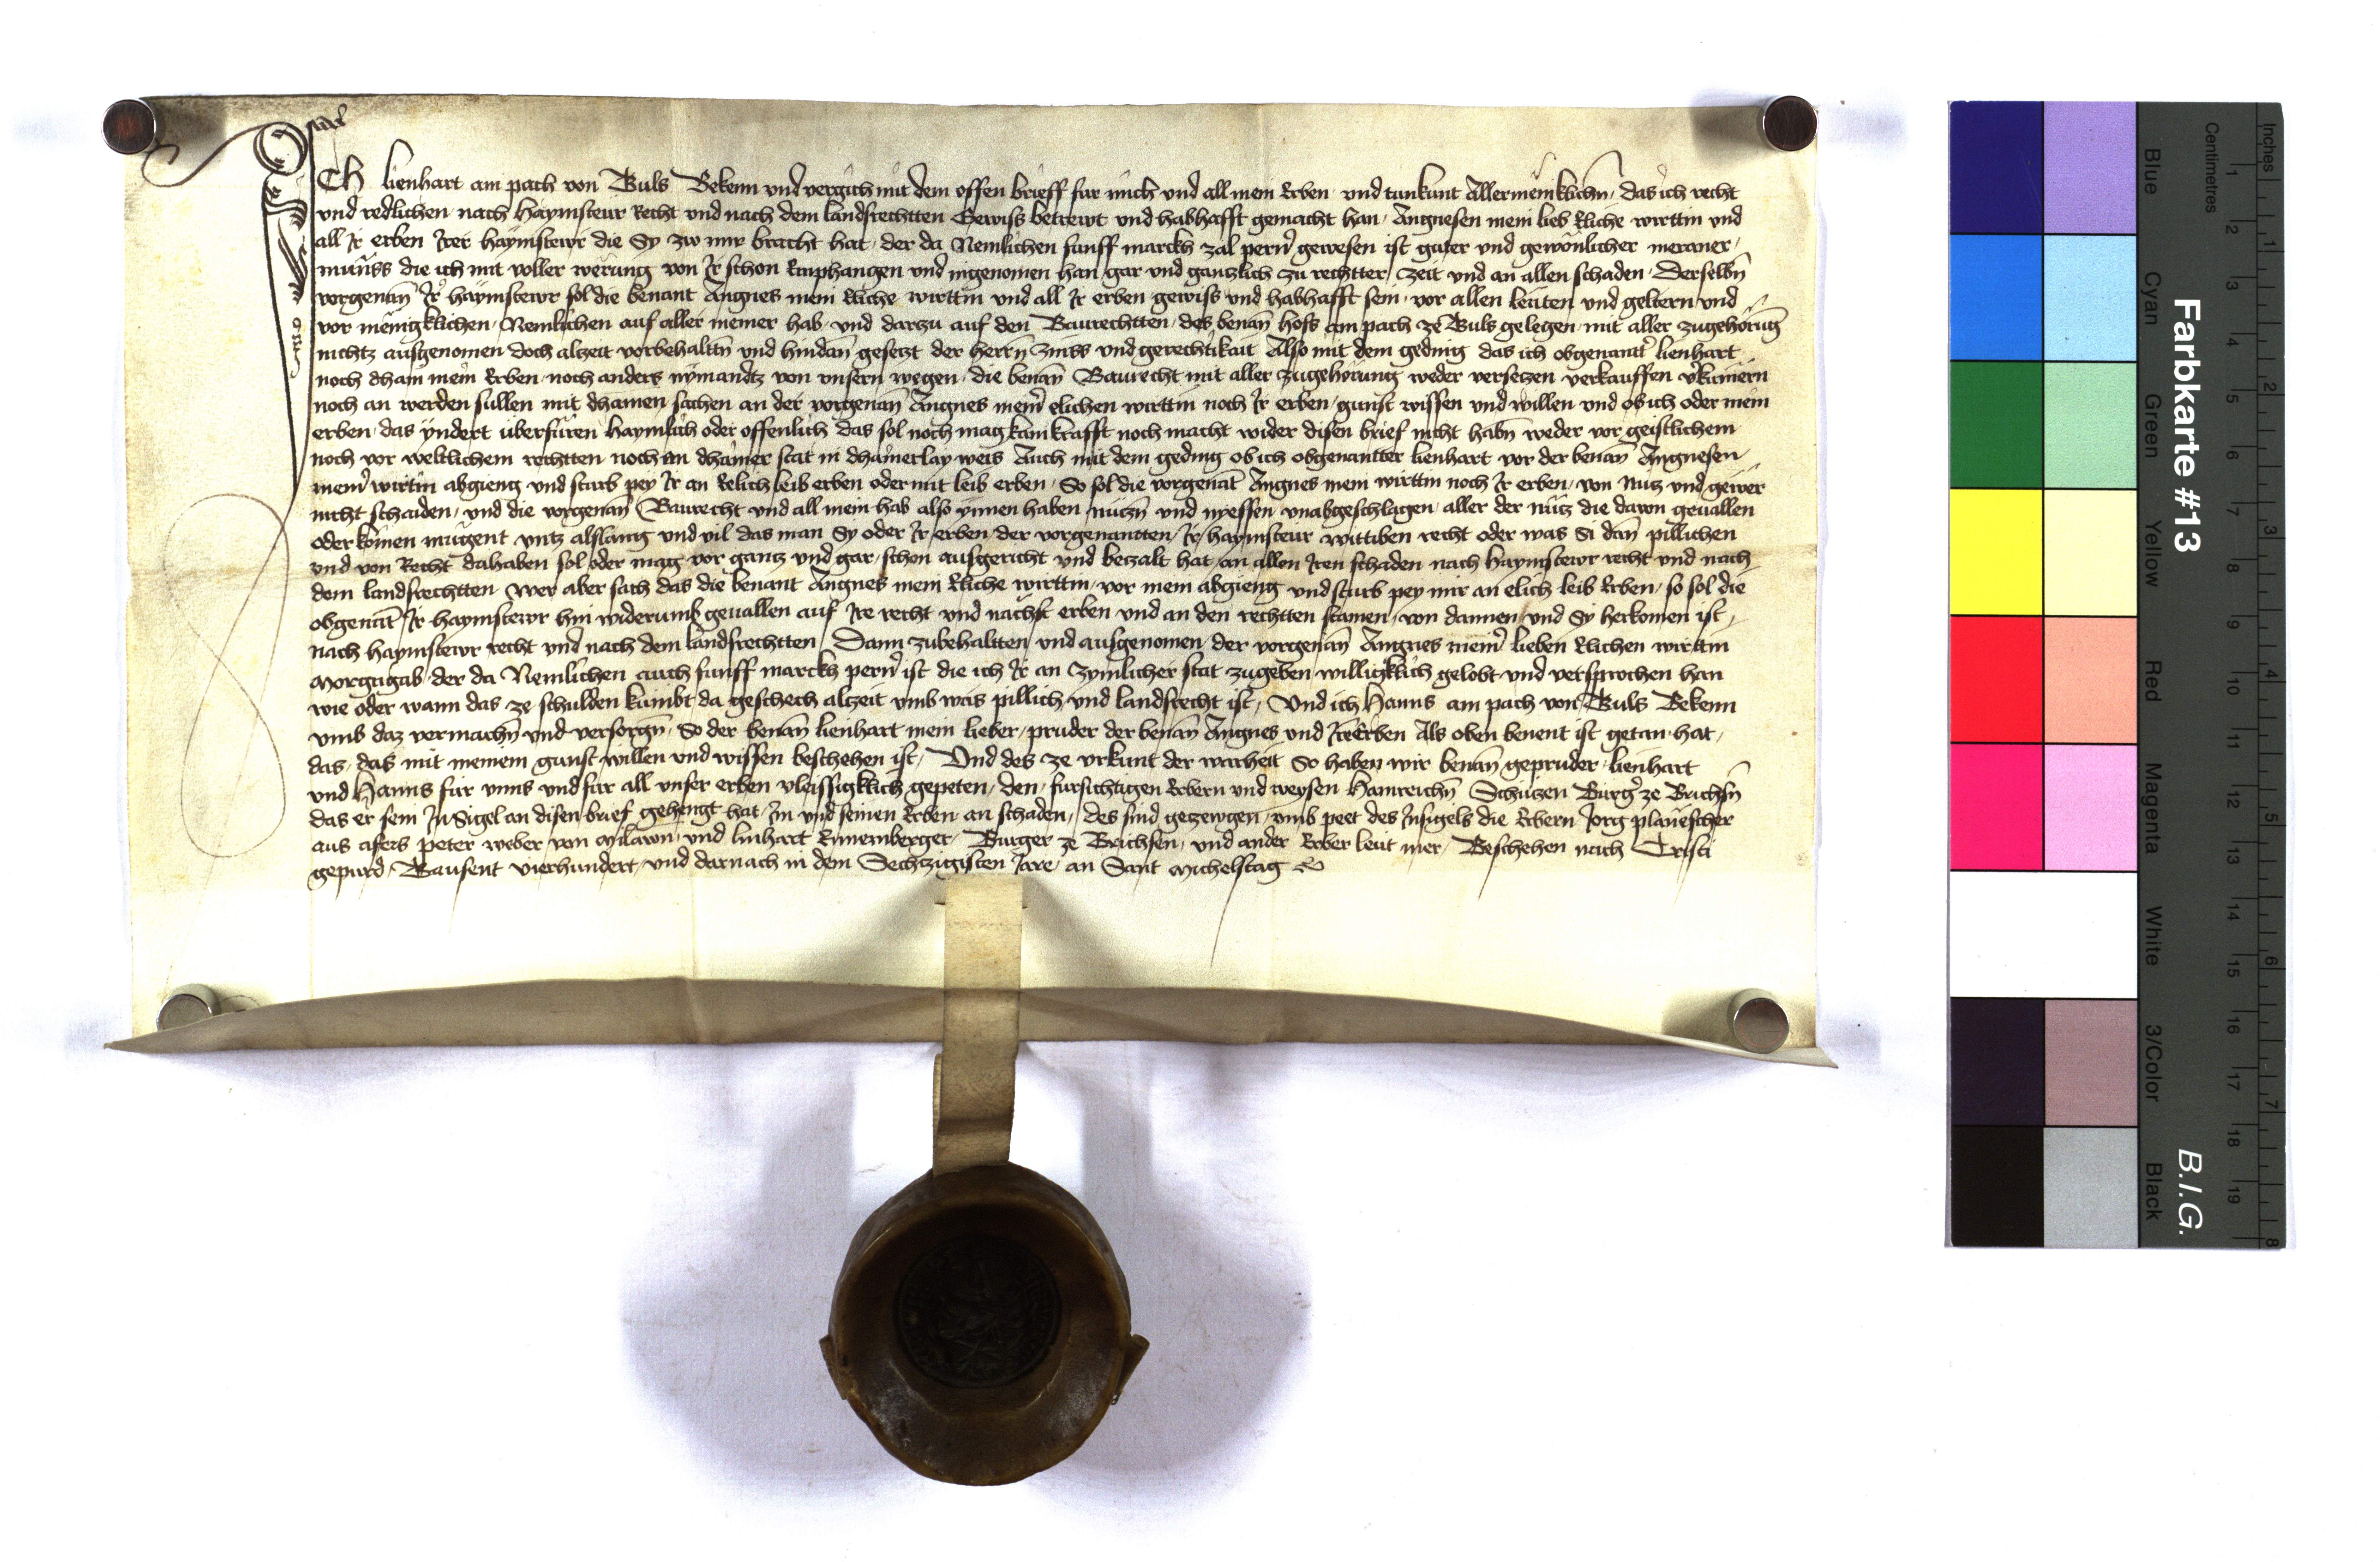 ICH lienhart am pach von Tuls Bekenn und vergich mit dem offen brieff fur mich und all mein Erben und tunkunt Allermeniklichn̄ das ich recht
und redlichen nach haymsteur Recht und nach dem landsrechtten Gewiss betrewt und habhafft gemacht han Angnesen mein lieb Eliche wirttin und
all Ir erben Irer haymstewr die Sy zw mir bracht hat der da Nemlichen funff marckh zal pern̄ gewesen ist guter und gewonlicher meraner
munss die ich mit voller werung von Ir schon Emphangen und ingenomen han gar und gantzlich zu rechtter zeit und an allen schaden Derselbn̄
vorgenan̄ Ir haymstewr sol die benant Angnes mein Eliche wirttin und all Ir erben gewiss und habhafft sein vor allen leuten und geltern und
vor menigklichen Nemlichen auf aller meiner hab und darzu auf den Baurechtten des benan̄ hofs am pach ze Tuls gelegen mit aller zugehorūg
nichtz ausgenomen doch alzeit vorbehaltn̄ und hindan gesetzt der herrn̄ zinss und gerechtikait Also mit dem geding das ich obgenantt lienhart
noch dhain mein Erben noch anders nymandtz von unsern wegen die benan̄ Baurecht mit aller zugehorung weder versetzen verkauffen v̄kumern
noch an werden sullen mit dhainen sachen an der vorgenan̄ Angnes mein̄ elichen wirttin noch Ir erben gunst wissen und willen und ob ich oder mein
erben das yndert uberfuren haymlich oder offenlich das sol noch mag kain krafft noch macht wider disen brief nicht habn̄ weder vor geistlichem
noch vor weltlichem rechtten noch an dhainer stat in dhainerlay weis Auch mit dem geding ob ich obgenantter lienhart vor der benan̄ Angnesen
mein̄ wirttin abgieng und starb pey Ir an Elich leib erben oder mit leib erben So sol die vorgenāt Angnes mein wirttin noch Ir erben von Nutz und gewer
nicht schaiden und die vorgenan̄ Baurecht und all mein hab also ynnen haben nutzn̄ und nyessen unabgeschlagen aller der nutz die davon gevallen
oder komen mugent untz alslang und vil das man Sy oder Ir erben der vorgenantten Ir haymsteur wittiben recht oder was Si dan̄ pillichen
und von Recht dahaben sol oder mag vor gantz und gar schon ausgericht und betzalt hat an allen Iren schaden nach haymstewr recht und nach
dem landsrechtten Wer aber sach das die benant Angnes mein Eliche wirttin vor mein abgieng und starb pey mir an elich leib Erben so sol die
obgenāt Ir haymstewr hin widerumb gevallen auf Ire recht und nachst erben und an den rechtten stamen von dannen und Sy herkomen ist
nach haymstewr recht und nach dem landsrechtten Dann zubehaltten und ausgenomen der vorgenan̄ Angnes mein̄ lieben Elichen wirttin
Morgngab der da Nemlichen auch funff marckh pern̄ ist die ich Ir an zymlicher stat zugeben willigklich gelobt und versprochen han
wie oder wann das ze schulden kumbt da geschech alzeit umb was pillich und landsrecht ist Und ich Hanns am pach von Tuls Bekenn
umb daz vermachn̄ und versorgn̄ So der benan̄ lienhart mein lieber pruder der benan̄ Angnes und Irn Erben Als oben benent ist getan hat
das das mit meinem gunst willen und wissen beschehen ist Und des ze urkunt der warheit So haben wir benan̄ gepruder lienhart
und Hanns fur unns und fur all unser erben vleissigklich gepeten den fursichtigen Erbern und weysen Hainreichn̄ Schutzen Burg̓ ze Brichsn̄
das er sein Insigel an disen brief gehengt hat Im und seinen Erben an schaden des sind getzewgen umb peet des Insigels die Erbern Jorg plaiescher
aus afers peter weber von Milawn und linhart Ennemberger Burger ze Brichsen und ander Erber leut mer Beschehen nach Cristi
gepurd Tausent vierhundert und darnach in dem Sechzigisten Jare an Sant Michelstag
Farbkarte #13
B.I.G.
Blue
Cyan
Green
Yellow
Red
Magenta
White
3/Color
Black
Centimetres
1 2 3 4 5 6 7 8 9 10 11 12 13 14 15 16 17 18 19
Inches
1 2 3 4 5 6 7 8